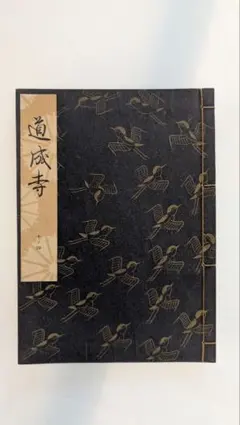 道成寺